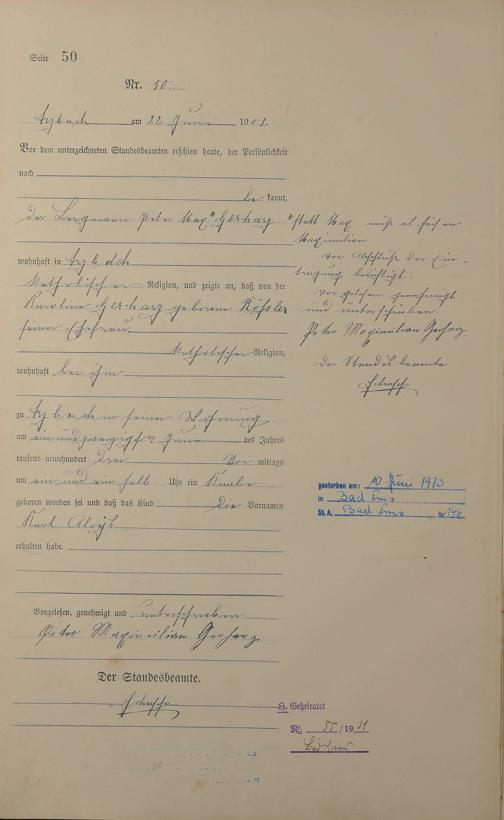 Seite 50
Nr. 50
Arzbach am 22 Juni 1903.
Vor dem unterzeichneten Standesbeamten erschien heute, der Persönlichkeit
nach
be kannt,
der Bergmann Peter Max* Gerharz
wohnhaft in Arzbach
katholischer Religion, und zeigte an, daß von der
Karoline Gerharz geborene Rößler
seiner Ehefrau
katholischer Religion,
wohnhaft bei ihm
zu Arzbach in seiner Wohnung
am ein und zwanzigst en Juni des Jahres
tausend neunhundert drei Vor mittags
um ein und ein halb Uhr ein Knabe
geboren worden sei und daß das Kind die Vornamen
Karl Aloys
erhalten habe.
Vorgelesen, genehmigt und unterschrieben
Peter Maximilian Gerharz
Der Standesbeamte.
* statt Max muß es heißen
Maximilian
vor Abschluß der Ein-
tragung berichtigt.
Vorgelesen genehmigt
und unterschrieben
Peter Maximilian Gerharz
Der Standesbeamte
gestorben am: 10. Juni 1973
in Bad Ems
St. A. Bad Ems Nr.
H. Geheiratet
Nr. 55/1931
Bad Ems